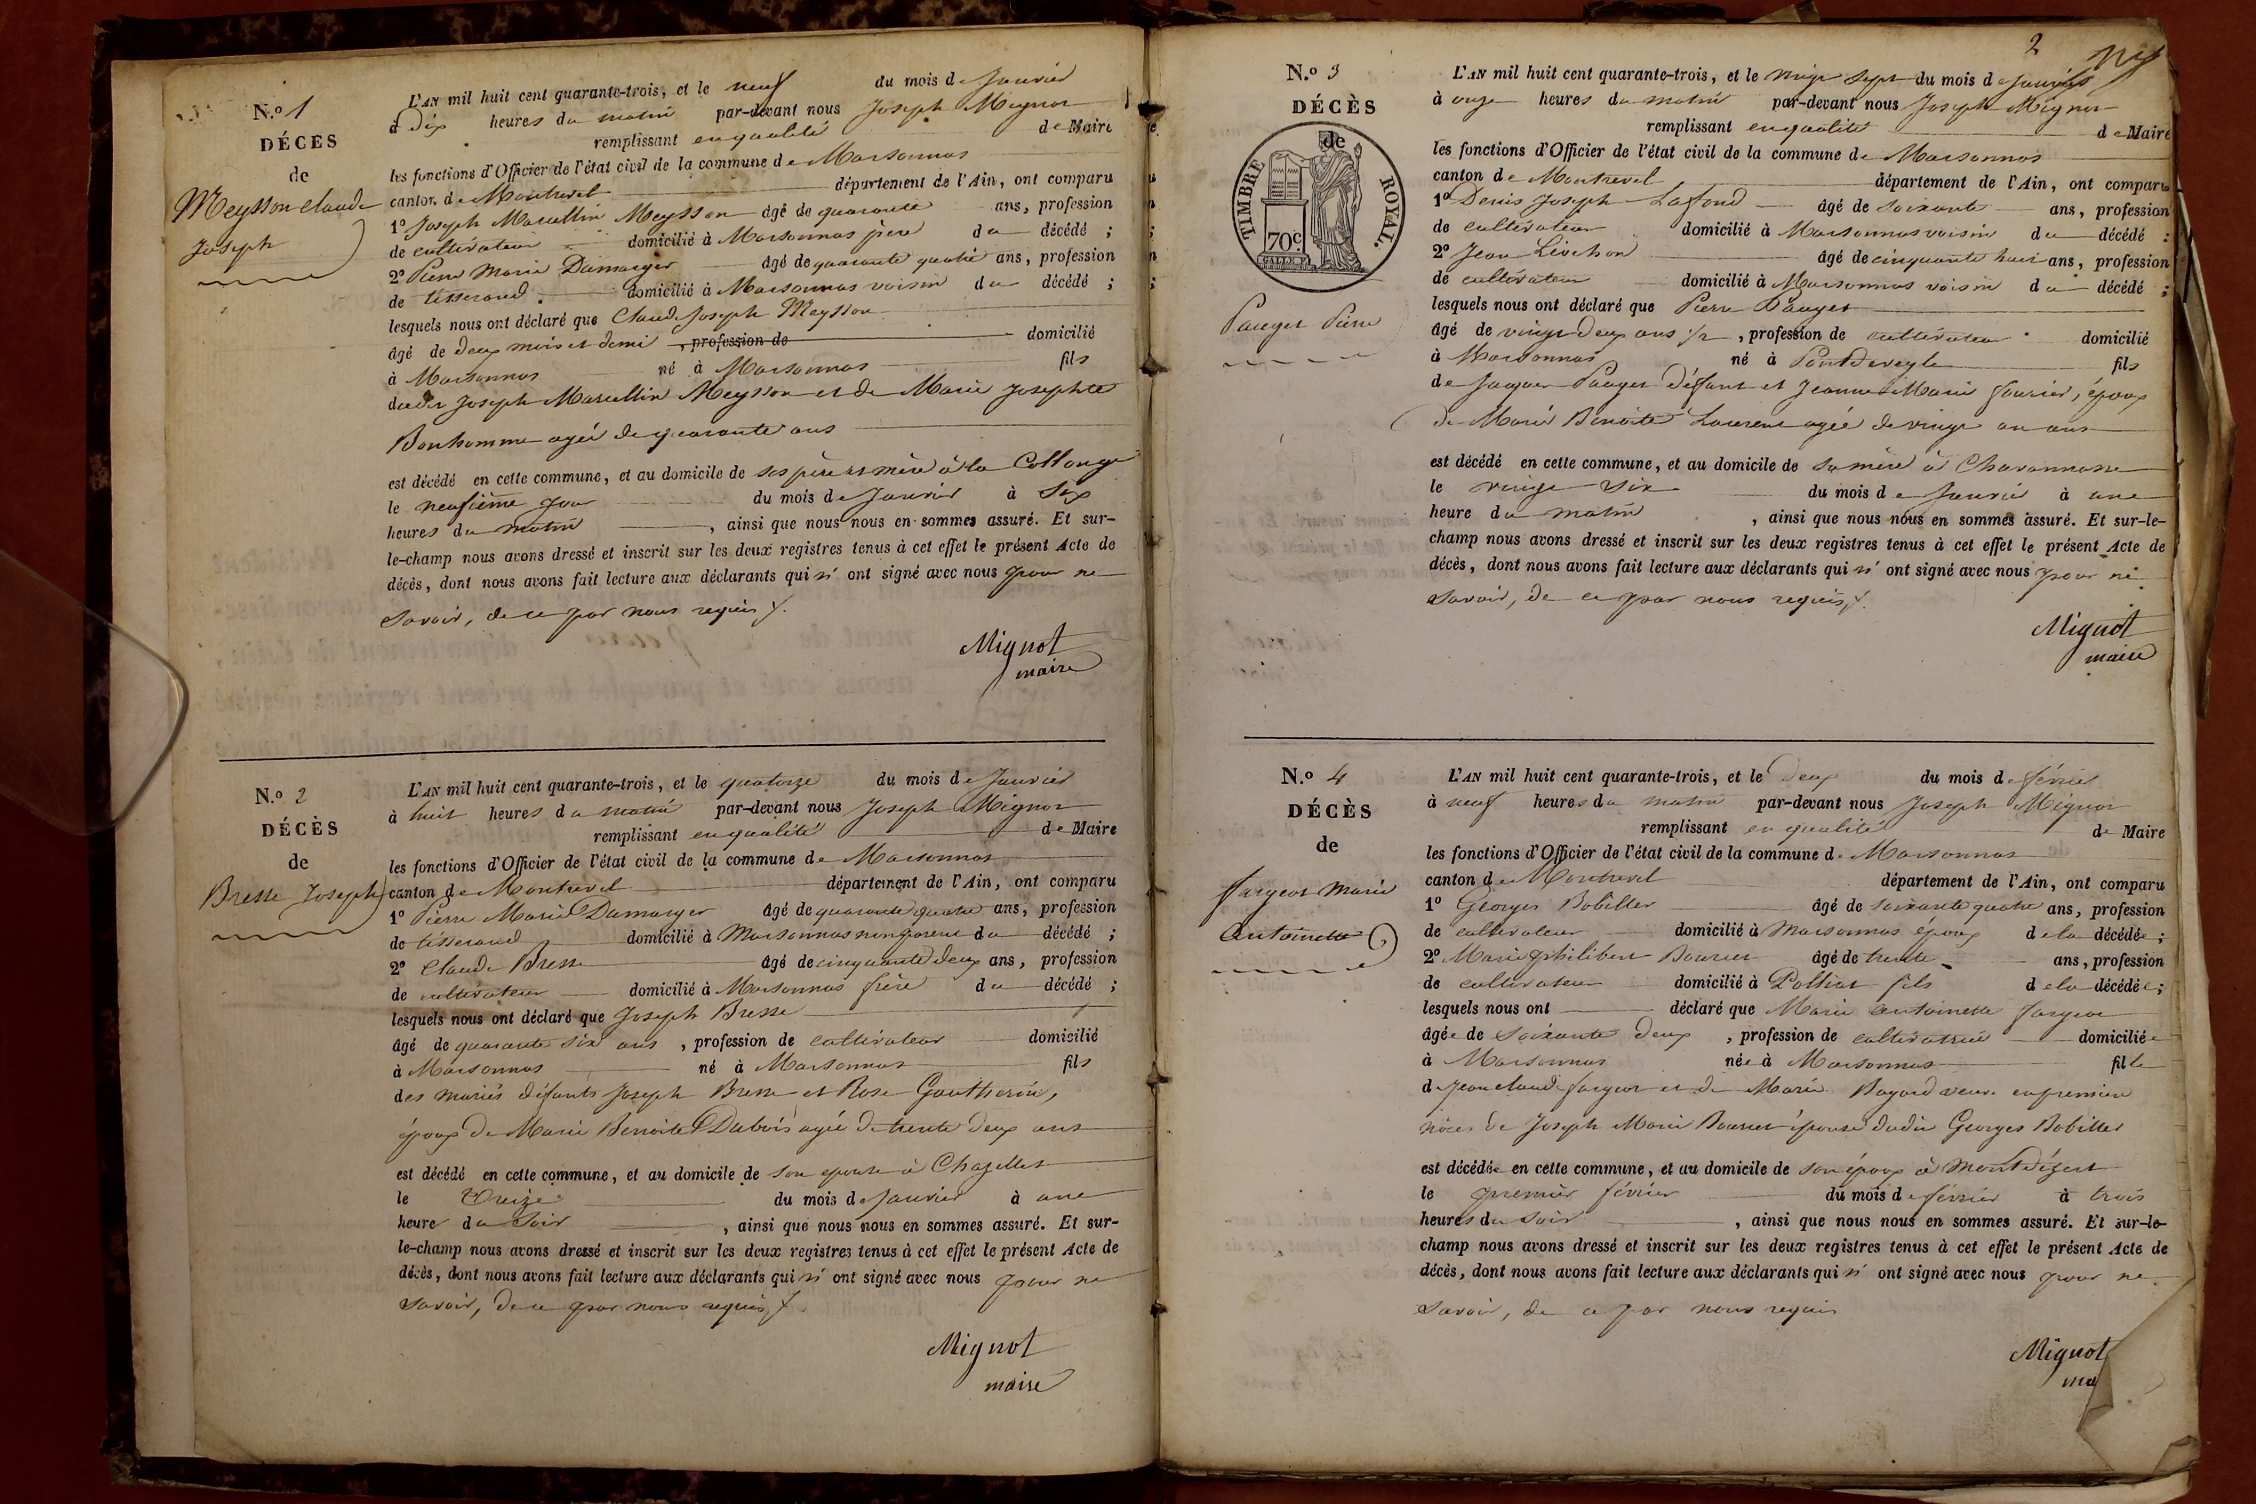 N.º 1
DÉCÈS
de
Meysson Claude
Joseph
L'AN mil huit cent quarante-trois, et le neuf du mois de Janvier
à Dix heures du matin par-devant nous Joseph Mignot
remplissant en qualité de Maire
les fonctions d'Officier de l'état civil de la commune de Marsonnas
canton de Montrevel département de l'Ain, ont comparu
1º Joseph Marcellin Meysson âgé de quarante ans, profession
de cultivateur domicilié à Marsonnas père du décédé ;
2º Pierre Marie Damarger âgé de quarante quatre ans, profession
de tisserand. domicilié à Marsonnas voisin du décédé ;
lesquels nous ont déclaré que Claude Joseph Meysson
âgé de deux mois et demi , profession de domicilié
à Marsonnas né à Marsonnas fils
dudit Joseph Marcellin Meysson et de Marie Josephte
Bonhomme agée de quarante ans
est décédé en cette commune, et au domicile de ses père et mère à la Collonge
le neufième jour du mois de Janvier à Six
heures du matin , ainsi que nous nous en sommes assuré. Et sur-
le-champ nous avons dressé et inscrit sur les deux registres tenus à cet effet le présent Acte de
décès, dont nous avons fait lecture aux déclarants qui n' ont signé avec nous pour ne
savoir, de ce par nous requis /.
Mignot
maire
N.º 2
DÉCÈS
de
Bresse Joseph
L'AN mil huit cent quarante-trois, et le quatorze du mois de Janvier
à huit heures du matin par-devant nous Joseph Mignot
remplissant en qualité de Maire
les fonctions d'Officier de l'état civil de la commune de Marsonnas
canton de Montrevel département de l'Ain, ont comparu
1º Pierre Marie Damarger âgé de quarante quatre ans, profession
de tisserand domicilié à Marsonnas non parent du décédé ;
2º Claude Bresse âgé de cinquante deux ans, profession
de cultivateur domicilié à Marsonnas frère du décédé ;
lesquels nous ont déclaré que Joseph Bresse
âgé de quarante six ans , profession de cultivateur domicilié
à Marsonnas né à Marsonnas fils
des mariés défunts Joseph Bresse et Rose Gautherin,
époux de Marie Benoite Dubois agée de trente deux ans
est décédé en cette commune, et au domicile de son epouse à Chazelles
le Treize du mois de Janvier à une
heure du soir , ainsi que nous nous en sommes assuré. Et sur-
le-champ nous avons dressé et inscrit sur les deux registres tenus à cet effet le présent Acte de
décès, dont nous avons fait lecture aux déclarants qui n' ont signé avec nous pour ne
savoir, de ce par nous requis /.
Mignot
maire
2
N.º 3
DÉCÈS
de
TIMBRE ROYAL.
70c.
Pauget Pierre
L'AN mil huit cent quarante-trois, et le vingt sept du mois de Janvier
à onze heures du matin par-devant nous Joseph Mignot
remplissant en qualité de Maire
les fonctions d'Officier de l'état civil de la commune de Marsonnas
canton de Montrevel département de l'Ain, ont comparu
1º Denis Joseph Lafond âgé de soixante ans, profession
de cultivateur domicilié à Marsonnas voisin du décédé :
2º Jean Livichon âgé de cinquante huit ans, profession
de cultivateur domicilié à Marsonnas voisin du décédé ;
lesquels nous ont déclaré que Pierre Pauget
âgé de vingt deux ans 1/2 , profession de cultivateur domicilié
à Marsonnas né à Pontdeveyle fils
de Jaques Pauget défunt et Jeanne Marie fourier, époux
de Marie Benoite Laurent agée de vingt un ans
est décédé en cette commune, et au domicile de sa mère à Chavannasse
le vingt six du mois de Janvier à une
heure du matin , ainsi que nous nous en sommes assuré. Et sur-le-
champ nous avons dressé et inscrit sur les deux registres tenus à cet effet le présent Acte de
décès, dont nous avons fait lecture aux déclarants qui n' ont signé avec nous pour ne
savoir, de ce par nous requis /.
Mignot
maire
N.º 4
DÉCÈS
de
fargeot Marie
Antoinette
L'AN mil huit cent quarante-trois, et le Deux du mois de février
à neuf heures du matin par-devant nous Joseph Mignot
remplissant en qualité de Maire
les fonctions d'Officier de l'état civil de la commune de Marsonnas
canton de Montrevel département de l'Ain, ont comparu
1º Georges Bobiller âgé de soixante quatre ans, profession
de cultivateur domicilié à Marsonnas époux de la décédée ;
2º Marie philibert Bourcet âgé de trente ans, profession
de cultivateur domicilié à Polliat fils de la décédée ;
lesquels nous ont déclaré que Marie Antoinette fargeot
âgée de soixante deux , profession de cultivatrice domiciliée
à Marsonnas née à Marsonnas fille
de Jean Claude fargeot et de Marie Bayard veuve en premiere
noces de Joseph Marie Bourcet épouse dudit Georges Bobiller
est décédée en cette commune, et au domicile de son époux à Montdézert
le premier février du mois de février à trois
heures du soir , ainsi que nous nous en sommes assuré. Et sur-le-
champ nous avons dressé et inscrit sur les deux registres tenus à cet effet le présent Acte de
décès, dont nous avons fait lecture aux déclarants qui n' ont signé avec nous pour ne
savoir, de ce par nous requis
Mignot
ma